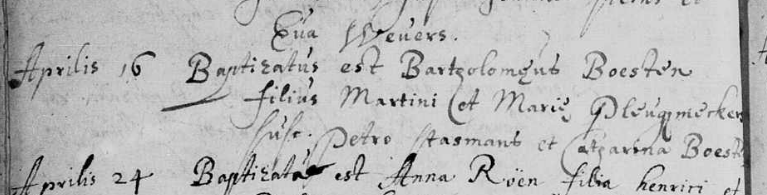 Eva Wevers.
Aprilis 16 Baptizatus est Bartholomęus Boesten
filius Martini et Marię Pleugmecker
susc. Petro Stasmans et Catharina Boest
Aprilis 24 Baptizata est Anna Röen filia henrici et